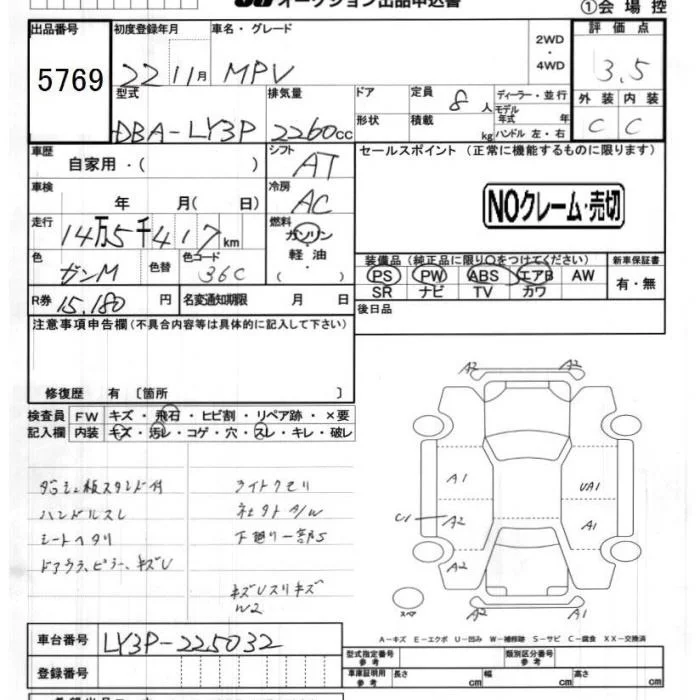 オークション出品申込書
①会場控
出品番号 初度登録年月 車名・グレード 評価点
5769 22 11月 MPV 2WD・4WD 3.5
型式 排気量 ドア 定員 8人 ディーラー・並行
外装 内装
DBA-LY3P 2260cc 形状 積載 kg モデル年式 年 ハンドル 左・右 C C
車歴 シフト セールスポイント (正常に機能するものに限ります)
自家用・( ) AT
車検 冷房
年 月( 日) AC
NOクレーム・売切
走行 燃料
14万5千417km ガソリン・軽油・( )
色 色替 色コード 装備品(純正品に限り○をつけてください) 新車保証書
ガンM 36C PS PW ABS エアB AW 有・無
SR ナビ TV カワ
R券 15,180円 名変通知期限 月 日
後日品
注意事項申告欄(不具合内容等は具体的に記入して下さい)
修復歴 有〔箇所 〕
検査員 FW キズ・飛石・ヒビ割・リペア跡・×要
記入欄 内装 キズ・汚レ・コゲ・穴・スレ・キレ・破レ
ダッシュ板スタンド付 ライトクモリ
ハンドルスレ
シートヘタリ 下廻り一部S
ドアウラ、ピラー、キズU
キズUスリキズ
W2
A2 A2
A1 UA1
C1 A2 A1
A2 A2
A2 A1
スペア
A-キズ E-エクボ U-凹み W-補修跡 S-サビ C-腐食 XX-交換済
車台番号 LY3P-225032
型式指定番号 参考 類別区分番号 参考
登録番号 車庫証明用 参考 長さ cm 幅 cm 高さ cm